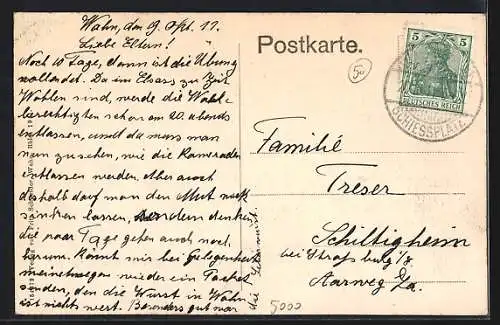 Wahn, den 9. Okt. 11.
Liebe Eltern!
Noch 10 Tage, dann ist die Übung
vollendet. Da im Elsass zur Zeit
Wahlen sind, werde die Wahl-
berechtigten schon am 20. abends
entlassen, und da muss man
nun zusehen, wie die Kameraden
entlassen werden. Aber auch
deshalb darf man den Mut nicht
sinken lassen, sondern denken
die paar Tage gehen auch noch
herum. Könnt mir bei Gelegenheit
meinetwegen wieder ein Packet
senden, denn die Wurst in Wahn
ist nichts wert. Besonders gut war
die
Postkarte.
50
5
DEUTSCHES REICH
SCHIESSPLATZ
Familie
Treser
Schiltigheim
bei Straßburg i/E
Aarweg
5000